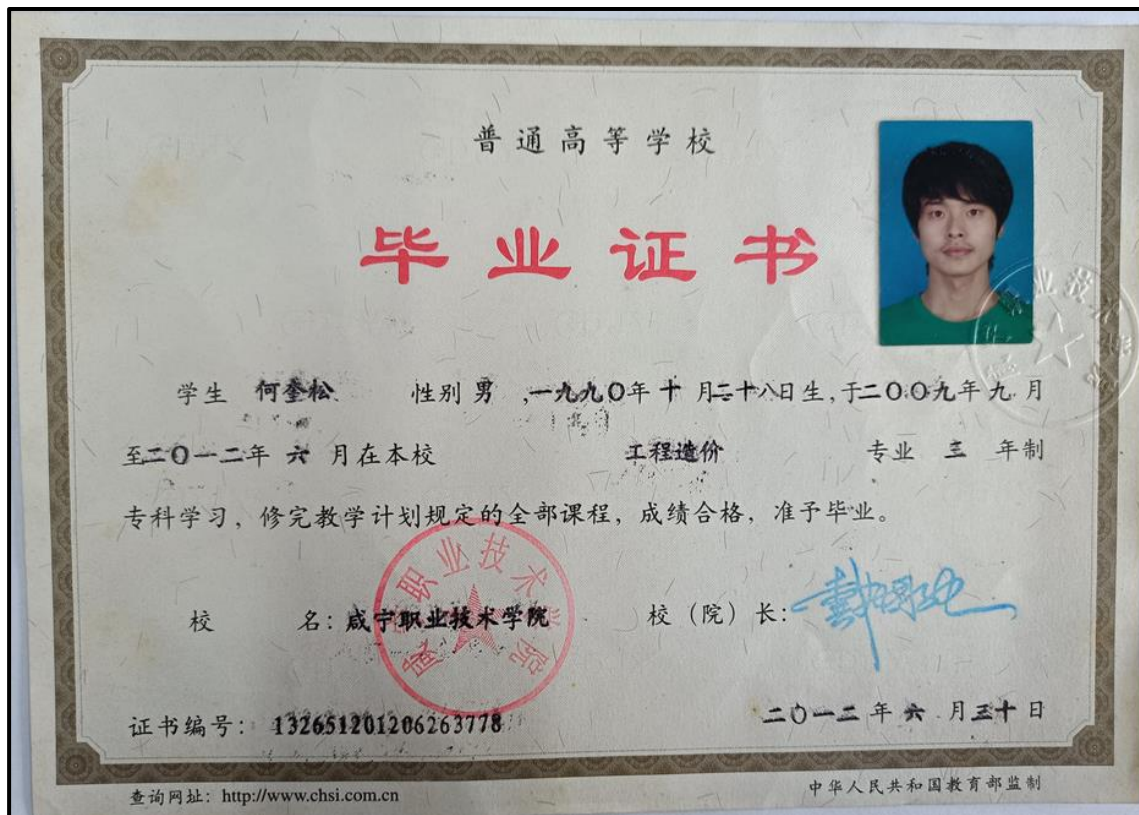 普通高等学校
毕业证书
学生 何奎松 性别 男 ,一九九〇年 十 月二十八日生,于二〇〇九年 九 月
至二〇一二年 六 月在本校 工程造价 专业 三 年制
专科学习，修完教学计划规定的全部课程，成绩合格，准予毕业。
校 名：咸宁职业技术学院 校（院）长：
咸宁职业技术学院
证书编号： 132651201206263778 二〇一二 年 六 月三十日
查询网址：http://www.chsi.com.cn 中华人民共和国教育部监制